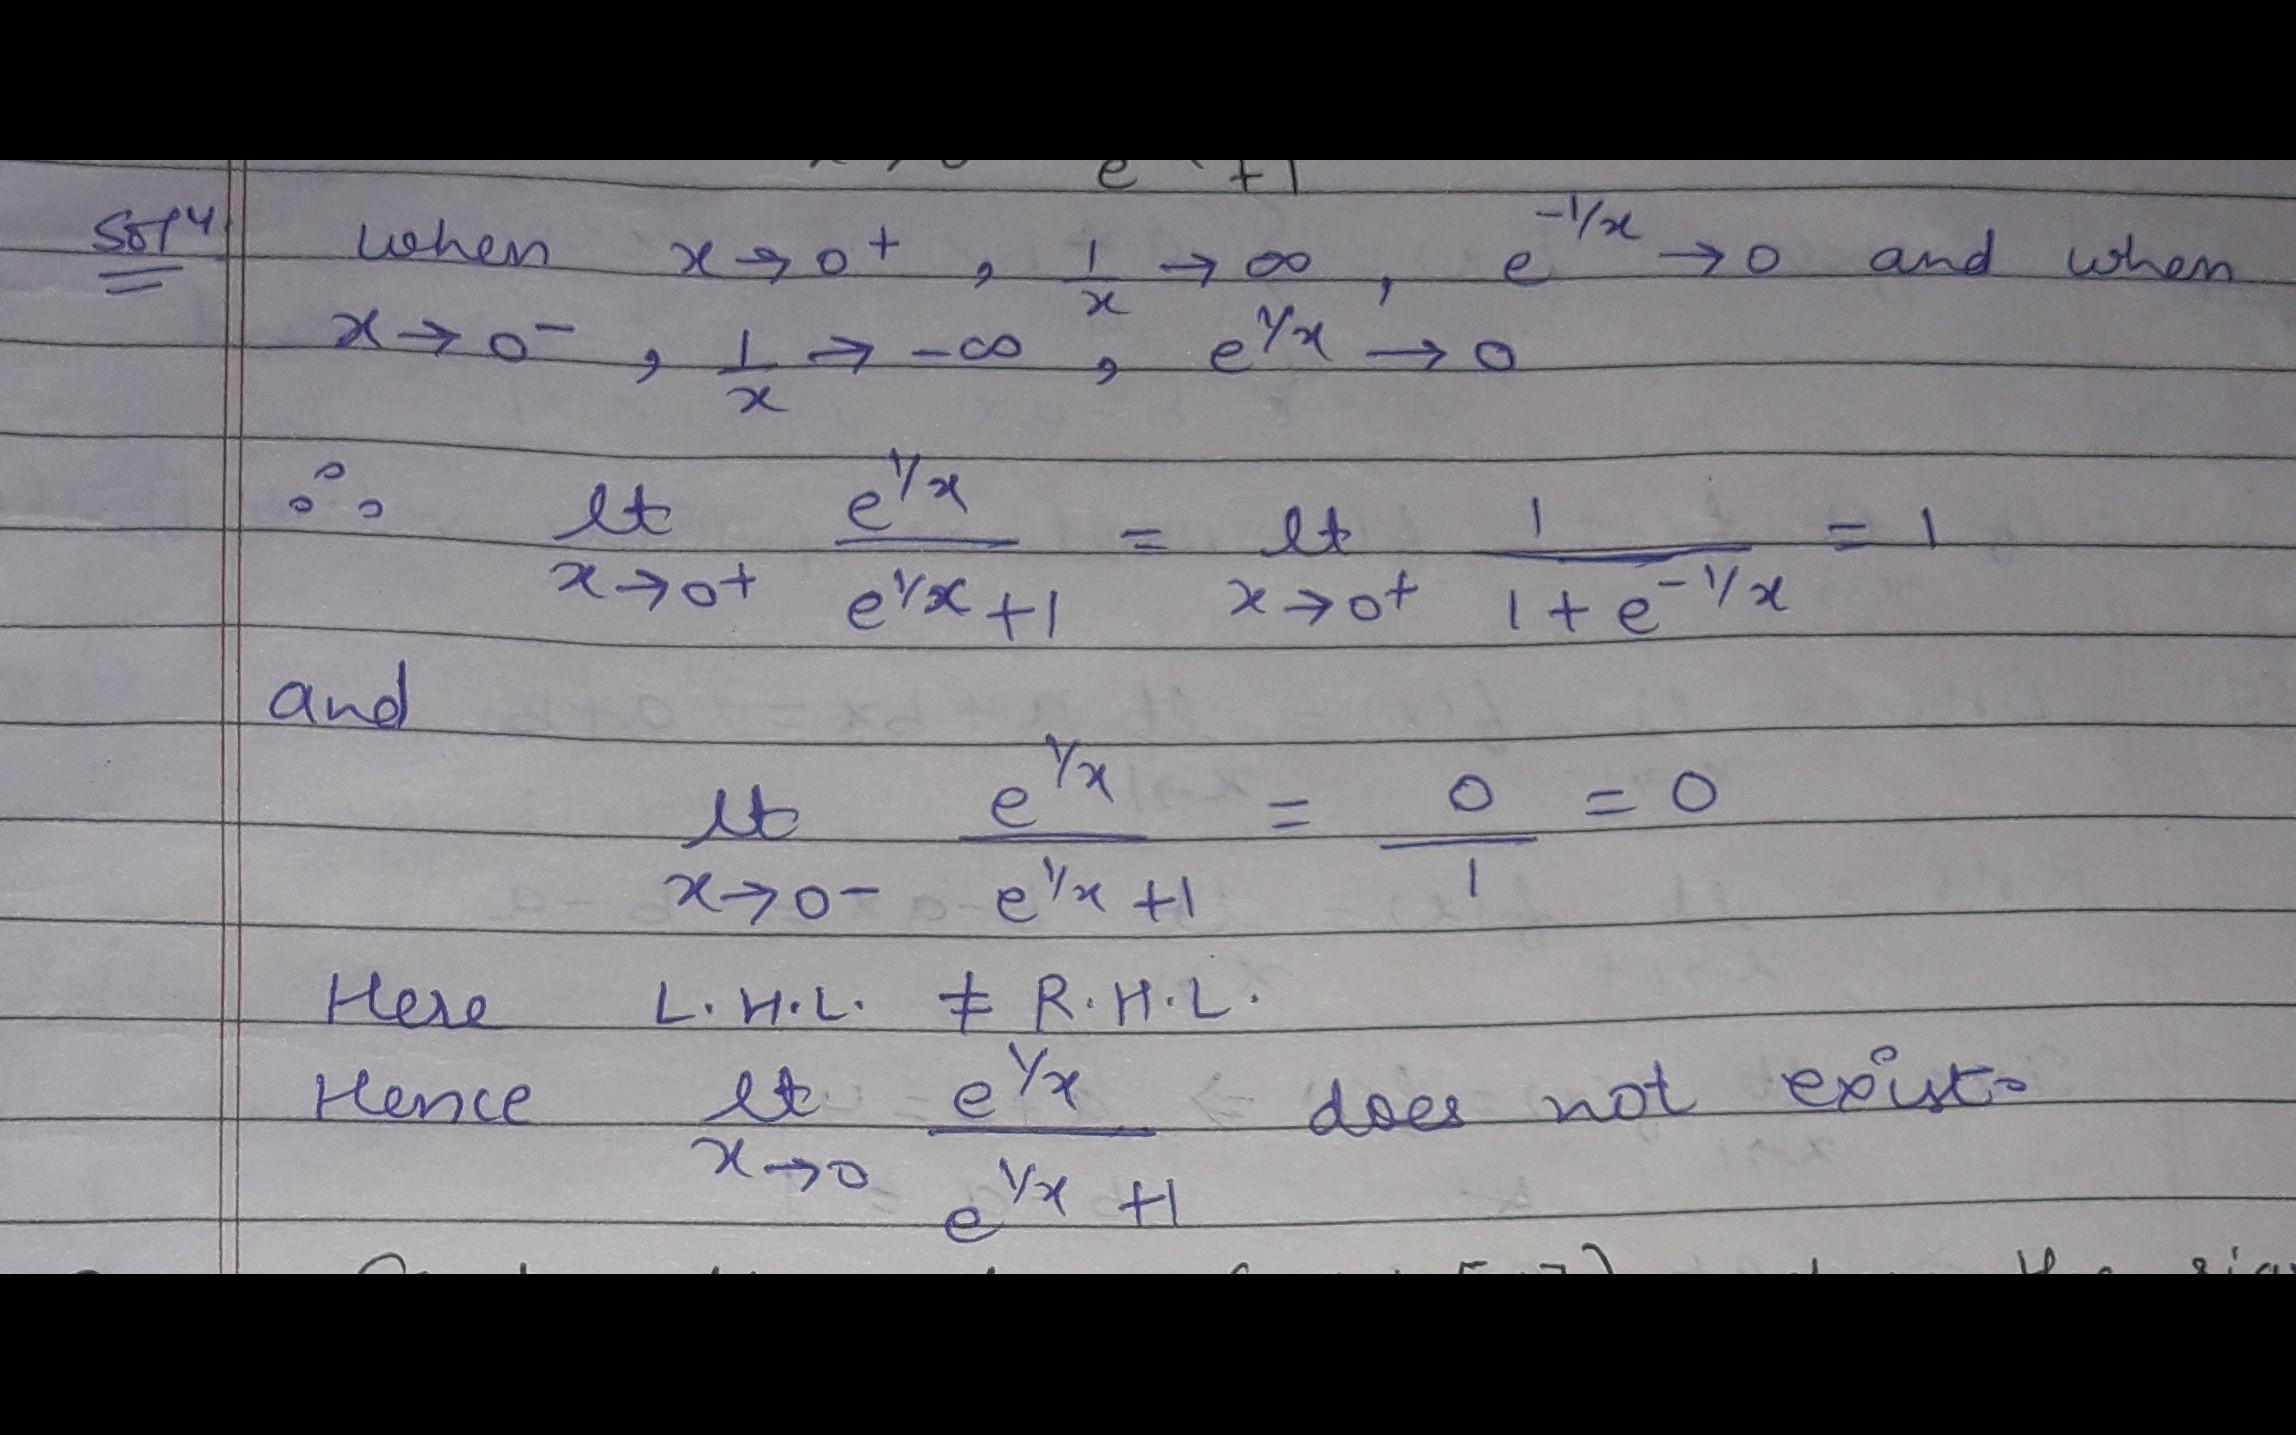 e +1
Solⁿ when x→0⁺, 1/x → ∞, e^(-1/x) → 0 and when
x→0⁻, 1/x → -∞, e^(1/x) → 0
∴ lt x→0+ e^(1/x) / (e^(1/x) +1) = lt x→0+ 1 / (1 + e^(-1/x)) = 1
and
lt x→0- e^(1/x) / (e^(1/x) +1) = 0/1 = 0
Here L.H.L. ≠ R.H.L.
Hence lt x→0 e^(1/x) / (e^(1/x) +1) does not exist.